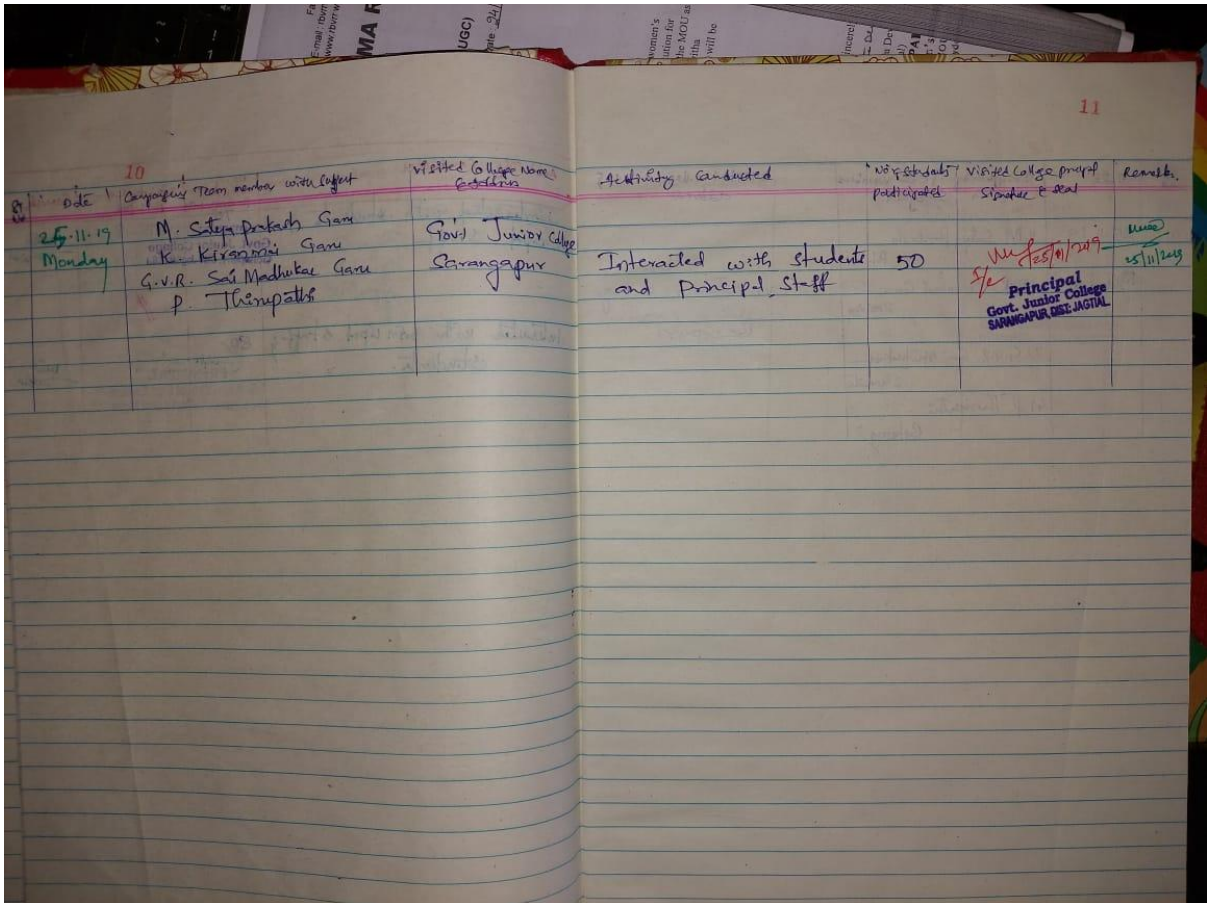 E-mail: rbvrr
www.rbvrrw
MA R
UGC)
ate 24/
women's
ution for
the MOU as
itha
will be
incerel
10
11
Date
Campaigning Team member with subject
Visited College Name
& address
Activity Conducted
No of students
participated
Visited College principal
Signature & seal
Remarks.
25.11.19
Monday
M. Satya prakash Garu
K. Kiranmai Garu
G.V.R. Sai Madhukar Garu
P. Thirupathi
Govt Junior College
Sarangapur
Interacted with students
and Principal, Staff
50
25/11/2019
I/c
Principal
Govt. Junior College
SARANGAPUR, DIST: JAGTIAL
25/11/2019